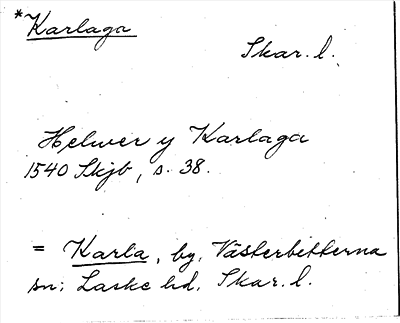 *Karlaga
Skar. l.
Helwer y Karlaga
1540 Skjb, s. 38.
= Karla, by, Västerbitterna
sn; Laske hd. Skar. l.